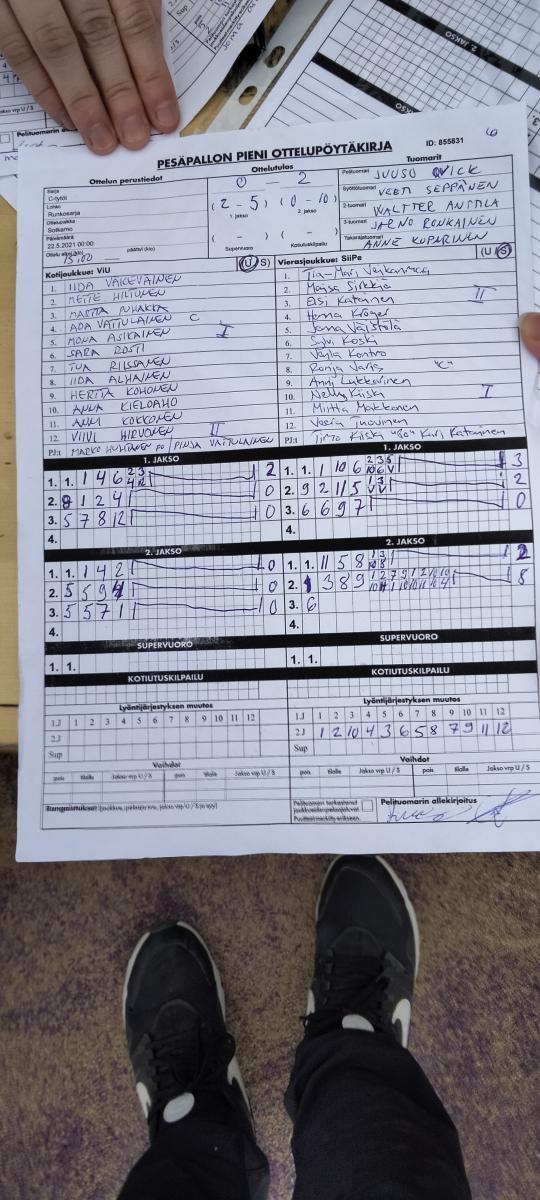 PESÄPALLON PIENI OTTELUPÖYTÄKIRJA
ID: 855831
6
Ottelun perustiedot
Sarja
C-tytöt
Lohko
Runkosarja
Ottelupaikka
Sotkamo
Päivämäärä
22.5.2021 00:00
Ottelu alkoi (klo) 15.00 päättyi (klo)
Ottelutulos
0 - 2
(2 - 5) (0 - 10)
1. jakso 2. jakso
( - ) ( - )
Supervuoro Kotiutuskilpailu
Tuomarit
Pelituomari JUUSO
Syöttötuomari VEETI SEPPÄNEN
2-tuomari WALTTER ANTTILA
3-tuomari JARNO RONKAINEN
Takarajatuomari ANNE KUPARINEN
Kotijoukkue: ViU (U/S)
1. IIDA VÄISÄNEN
2. METTE HILTUNEN
3. MARTTA PUHAKKA
4. ADA VATTULAINEN C
5. MONA ASIKAINEN I
6. SARA ROSTI
7. TUA RIISSANEN
8. IIDA ALHAINEN
9. HERTTA KOHONEN
10. ANNA KIELOAHO
11. ANNI KOKKONEN
12. VIIVI HIRVONEN II
PJ:t MARKO HUHTINEN PO / PINJA VATTULAINEN
Vierasjoukkue: SiiPe (U/S)
1. Tia-Mari
2. Maisa Sirkkiä
3. Elsi Katainen II
4. Henna Kröger
5. Jenna Väistölä
6. Sylvi Koski
7. Venla Kontro
8. Ronja Varis "C"
9. Anni Lukkarinen
10. Nelly Kiiski I
11. Miitta Makkonen
12. Veera Inovinen
PJ:t Timo Kiiski "Po" Kari Katainen
1. JAKSO
1. 1. 1 4 6 2 3 4 12 2
2. 8 1 2 4 0
3. 5 7 8 12 0
4.
1. JAKSO
1. 1. 1 10 6 2 3 5 10 6 V 3
2. 9 2 11 5 1 3 V V 2
3. 6 6 9 7 0
4.
2. JAKSO
1. 1. 1 4 2 0
2. 5 5 9 4 0
3. 5 5 7 1 0
4.
2. JAKSO
1. 1. 11 5 8 1 3 10 8 2
2. 1 3 8 9 8
3. 6
4.
SUPERVUORO
1. 1.
1. 1.
KOTIUTUSKILPAILU
KOTIUTUSKILPAILU
Lyöntijärjestyksen muutos
1.J 1 2 3 4 5 6 7 8 9 10 11 12
2.J
Sup
Lyöntijärjestyksen muutos
1.J 1 2 3 4 5 6 7 8 9 10 11 12
2.J 1 2 10 4 3 6 5 8 7 9 11 12
Sup
Vaihdot
pois tilalle Jakso vrp U / S pois tilalle Jakso vrp U / S
Vaihdot
pois tilalle Jakso vrp U / S pois tilalle Jakso vrp U / S
Rangaistukset (joukkue, pelaaja nro, jakso vrp/U / S ja syy)
Pelituomarin allekirjoitus
2. JAKSO